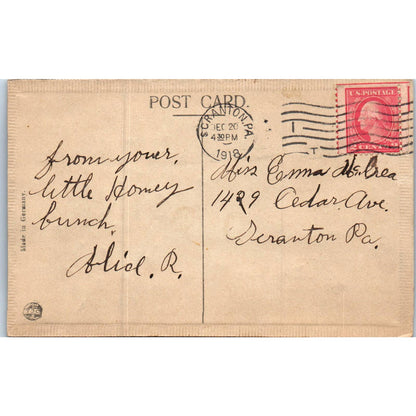 POST CARD.
SCRANTON, PA.
DEC 20
4 30 PM
1918
U.S. POSTAGE
2 CENTS 2
from your
little Honey
bunch.
Alice. R.
Miss Emma McCrea
1429 Cedar Ave.
Scranton Pa.
Made in Germany.